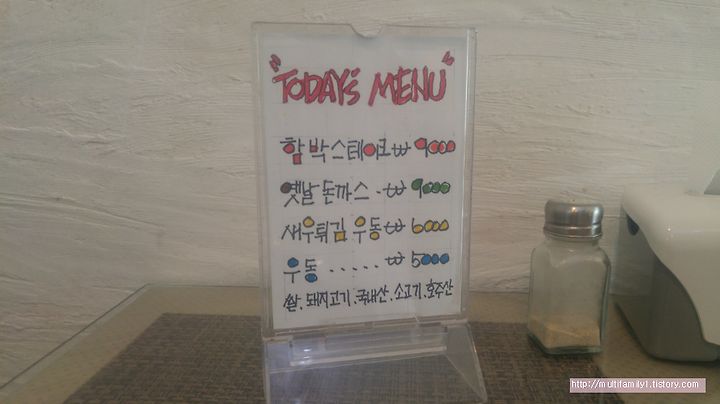 "TODAY'S MENU"
함박스테이크 ₩ 9000
옛날돈까스 . ₩ 9000
새우튀김 우동 ₩ 6000
우동 ..... ₩ 5000
쌀.돼지고기.국내산.소고기.호주산
http://multifamily1.tistory.com